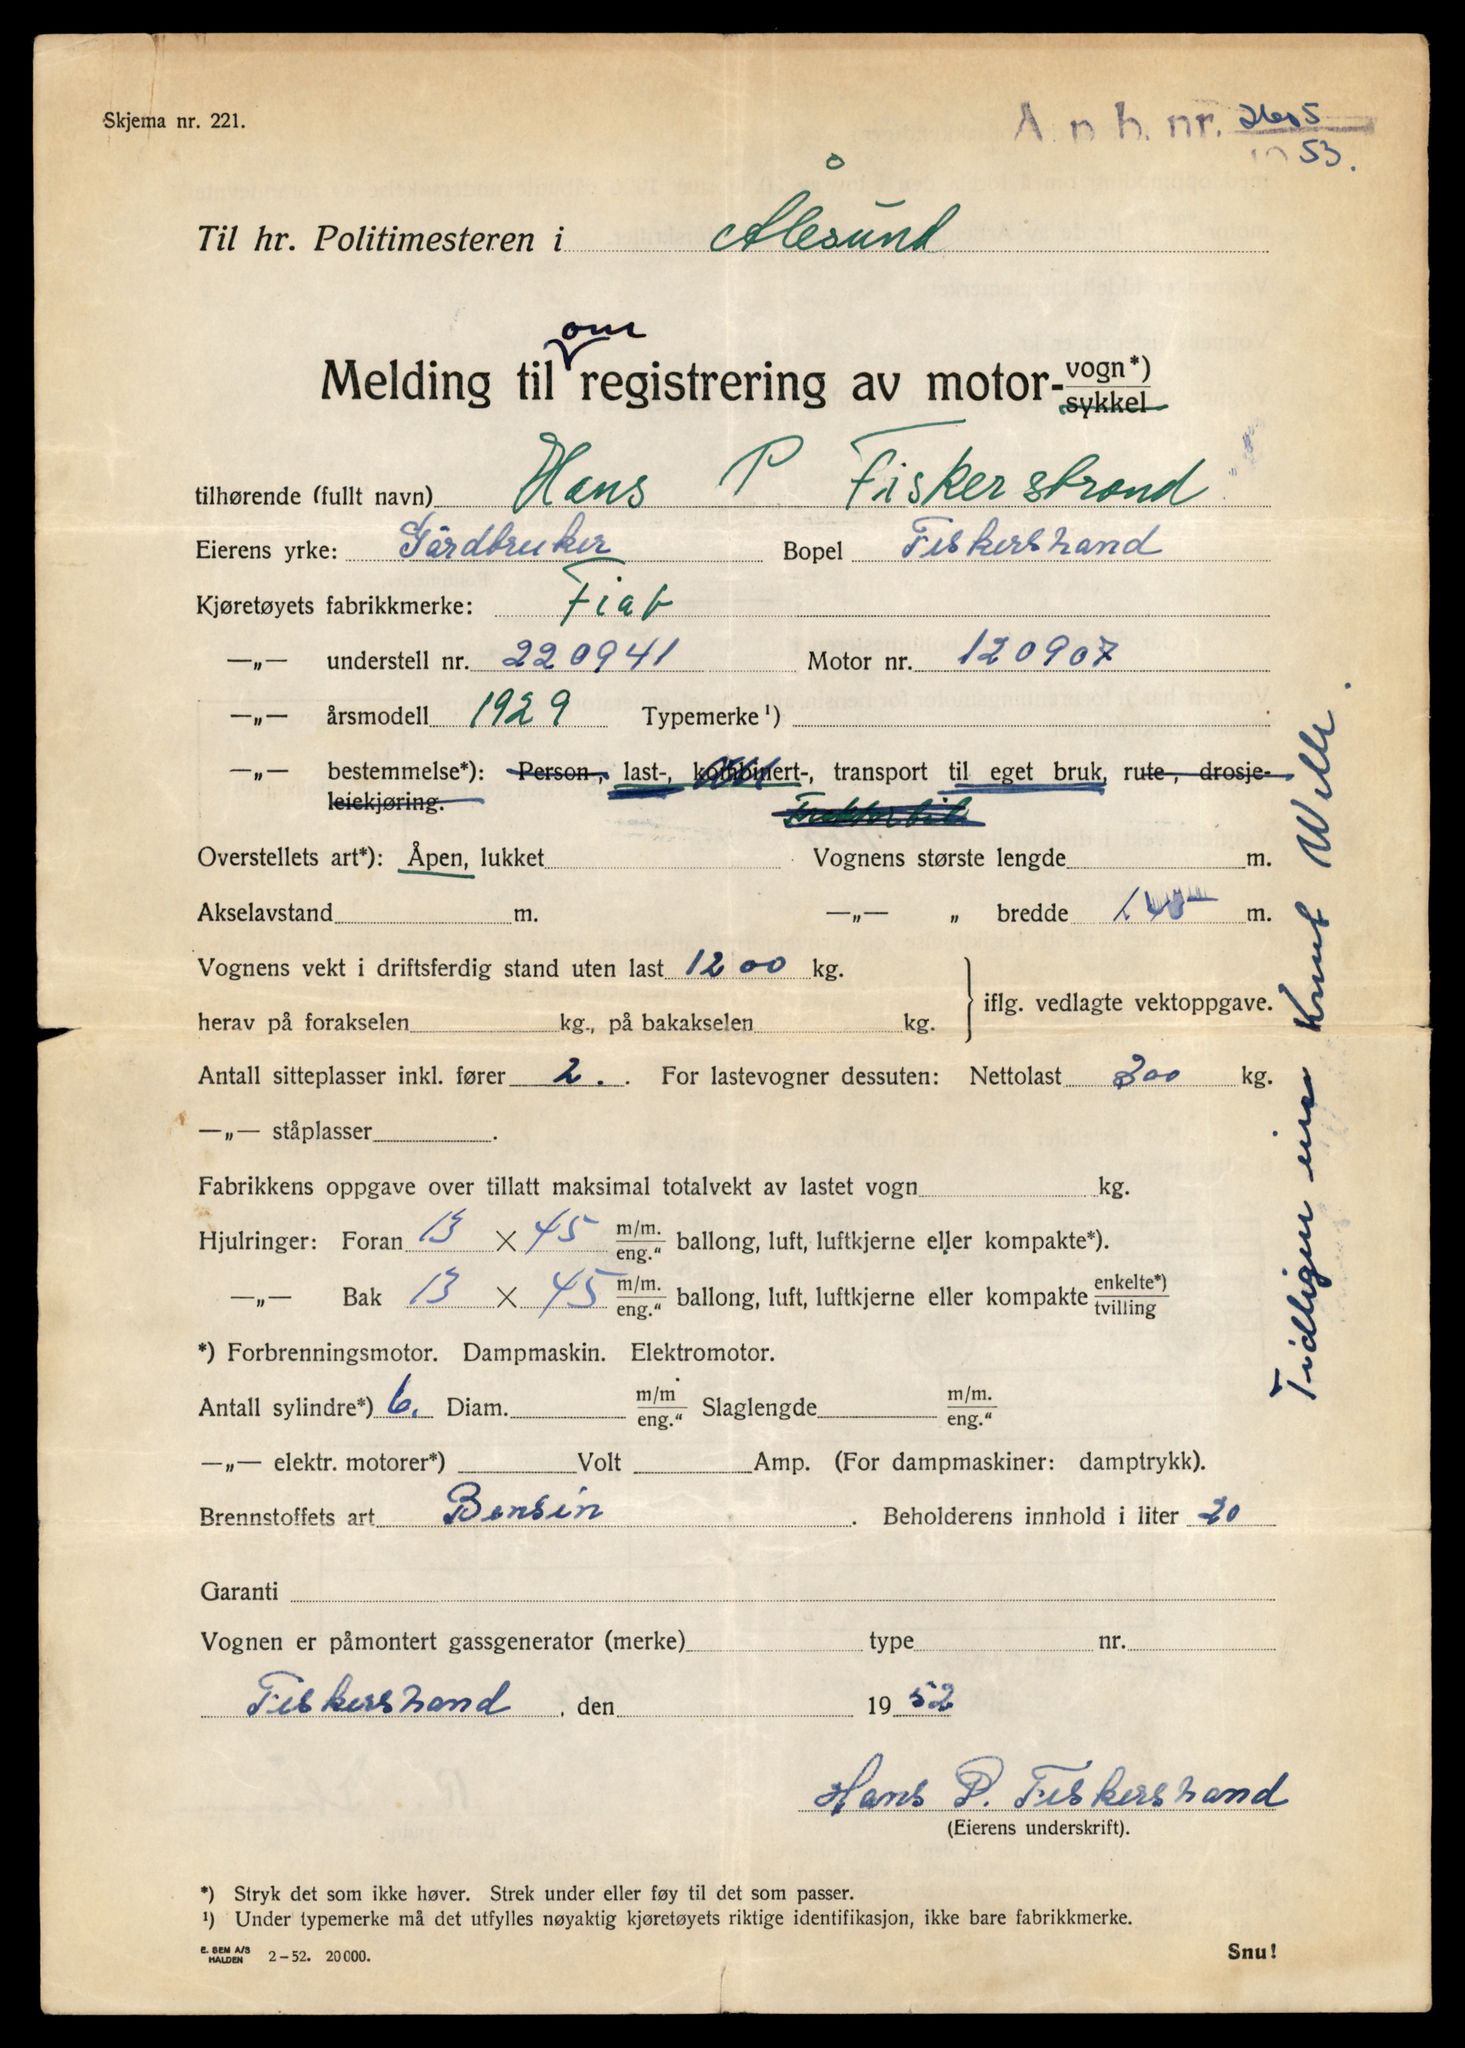 Skjema nr. 221.
A n h. nr.
53.
Til hr. Politimesteren i Ålesund
om
Melding til registrering av motor- vogn*)
sykkel
tilhørende (fullt navn) Hans P Fiskerstrand
Eierens yrke: Gårdbruker Bopel Fiskerstrand
Kjøretøyets fabrikkmerke: Fiat
—„— understell nr. 220941 Motor nr. 120907
—„— årsmodell 1929 Typemerke¹)
—„— bestemmelse*): Person-, last-, kombinert-, transport til eget bruk, rute-, drosje-
leiekjøring.
Overstellets art*): Åpen, lukket Vognens største lengde m.
Akselavstand m. —„— „ bredde 1.45 m.
Vognens vekt i driftsferdig stand uten last 1200 kg.
herav på forakselen kg., på bakakselen kg. iflg. vedlagte vektoppgave.
Antall sitteplasser inkl. fører 2. . For lastevogner dessuten: Nettolast 300 kg.
—„— ståplasser .
Fabrikkens oppgave over tillatt maksimal totalvekt av lastet vogn kg.
Hjulringer: Foran 13 × 45 m/m. eng.“ ballong, luft, luftkjerne eller kompakte*).
—„— Bak 13 × 45 m/m. eng.“ ballong, luft, luftkjerne eller kompakte enkelte*) tvilling
*) Forbrenningsmotor. Dampmaskin. Elektromotor.
Antall sylindre*) 6. Diam. m/m eng.“ Slaglengde m/m. eng.“
—„— elektr. motorer*) Volt Amp. (For dampmaskiner: damptrykk).
Brennstoffets art Bensin . Beholderens innhold i liter 20
Garanti
Vognen er påmontert gassgenerator (merke) type nr.
Fiskerstrand , den 19 52
Hans P. Fiskerstrand
(Eierens underskrift).
*) Stryk det som ikke høver. Strek under eller føy til det som passer.
¹) Under typemerke må det utfylles nøyaktig kjøretøyets riktige identifikasjon, ikke bare fabrikkmerke.
E. SEM A/S
HALDEN 2-52. 20 000.
Snu!
Tidligere eier Knut Welle.